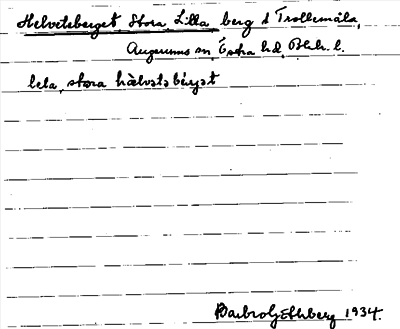 Helvetesberget, Stora, Lilla berg å Trollemåla,
Augerums sn, Östra hd, Blek. l.
lela, stora hælvetsbärjet
Barbro 1934.